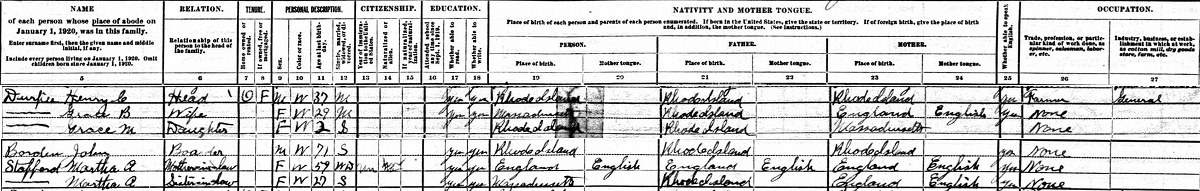 NAME RELATION. TENURE. PERSONAL DESCRIPTION. CITIZENSHIP. EDUCATION. NATIVITY AND MOTHER TONGUE. OCCUPATION.
of each person whose place of abode on January 1, 1920, was in this family.
Enter surname first, then the given name and middle initial, if any.
Include every person living on January 1, 1920. Omit children born since January 1, 1920.
Relationship of this person to the head of the family.
Home owned or rented.
If owned, free or mortgaged.
Sex.
Color or race.
Age at last birthday.
Single, married, widowed, or divorced.
Year of immigration to the United States.
Naturalized or alien.
If naturalized, year of naturalization.
Attended school any time since Sept. 1, 1919.
Whether able to read.
Whether able to write.
Place of birth of each person and parents of each person enumerated. If born in the United States, give the state or territory. If of foreign birth, give the place of birth and, in addition, the mother tongue. (See instructions.)
PERSON. FATHER. MOTHER.
Place of birth. Mother tongue. Place of birth. Mother tongue. Place of birth. Mother tongue.
Whether able to speak English.
Trade, profession, or particular kind of work done, as spinner, salesman, laborer, etc.
Industry, business, or establishment in which at work, as cotton mill, dry goods store, farm, etc.
5 6 7 8 9 10 11 12 13 14 15 16 17 18 19 20 21 22 23 24 25 26 27
Durfee Henry C Head O F M W 37 M yes yes Rhode Island Rhode Island Rhode Island yes Farmer General
Grace B Wife F W 29 M yes yes Massachusetts Rhode Island England English yes None
Grace M Daughter F W 2 S Rhode Island Rhode Island Massachusetts None
Borden John Boarder M W 71 S yes yes Rhode Island Rhode Island Rhode Island yes None
Stafford Martha A Mother in law F W 59 Wd un Na yes yes England English England English England English yes None
Martha A Sister in law F W 27 S yes yes Massachusetts Rhode Island England English yes None